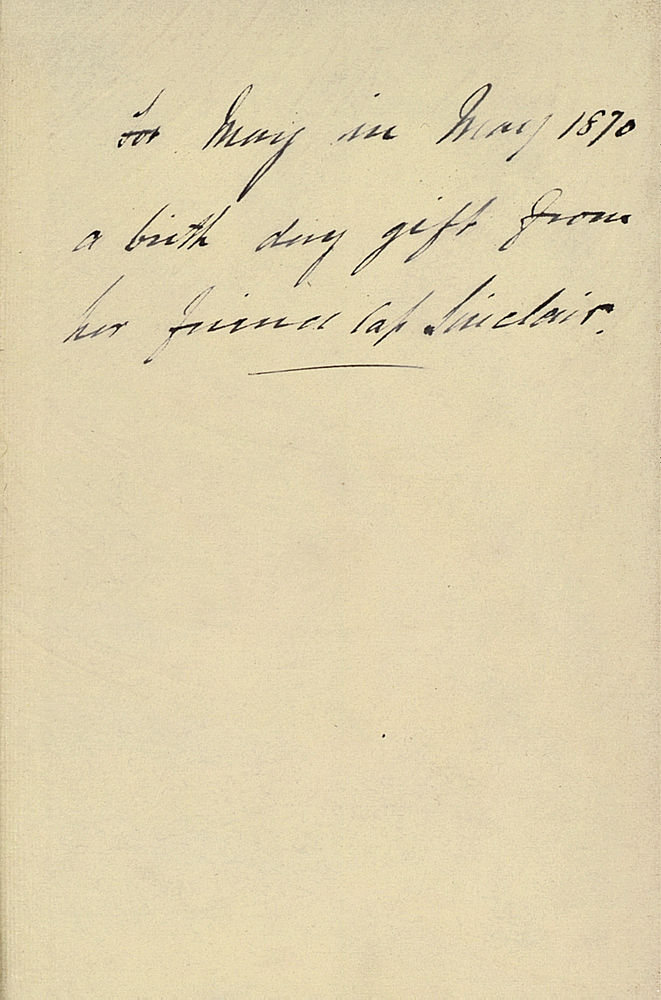 For May in May 1870
a birth day gift from
her friend Cap Sinclair.